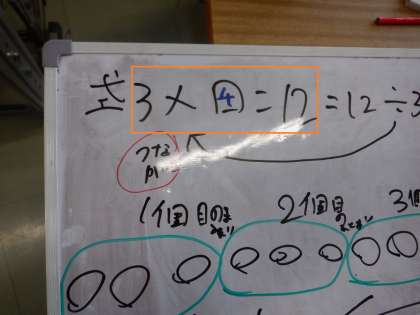 式 3×4=12=12÷3
つなが
1個目のまとまり 2個目のまとまり 3個